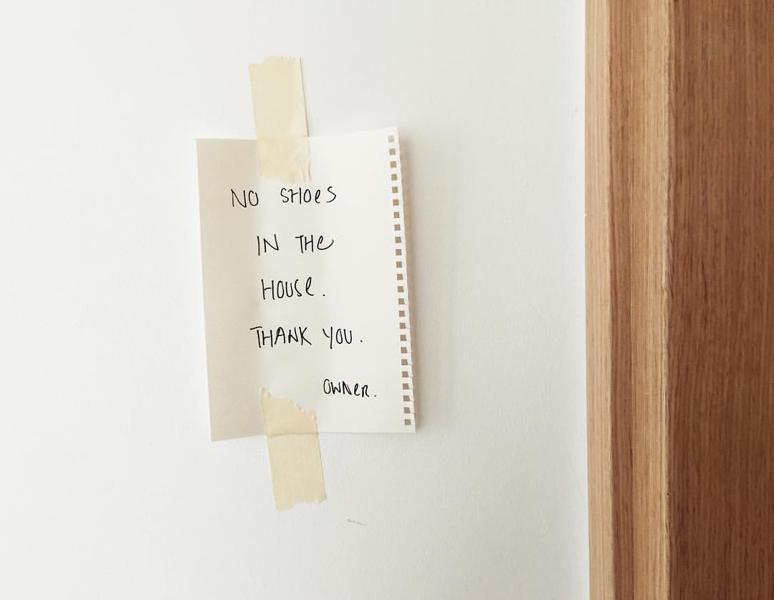 NO SHOeS
IN THe
HOUSe.
THANK YOU.
OWNeR.